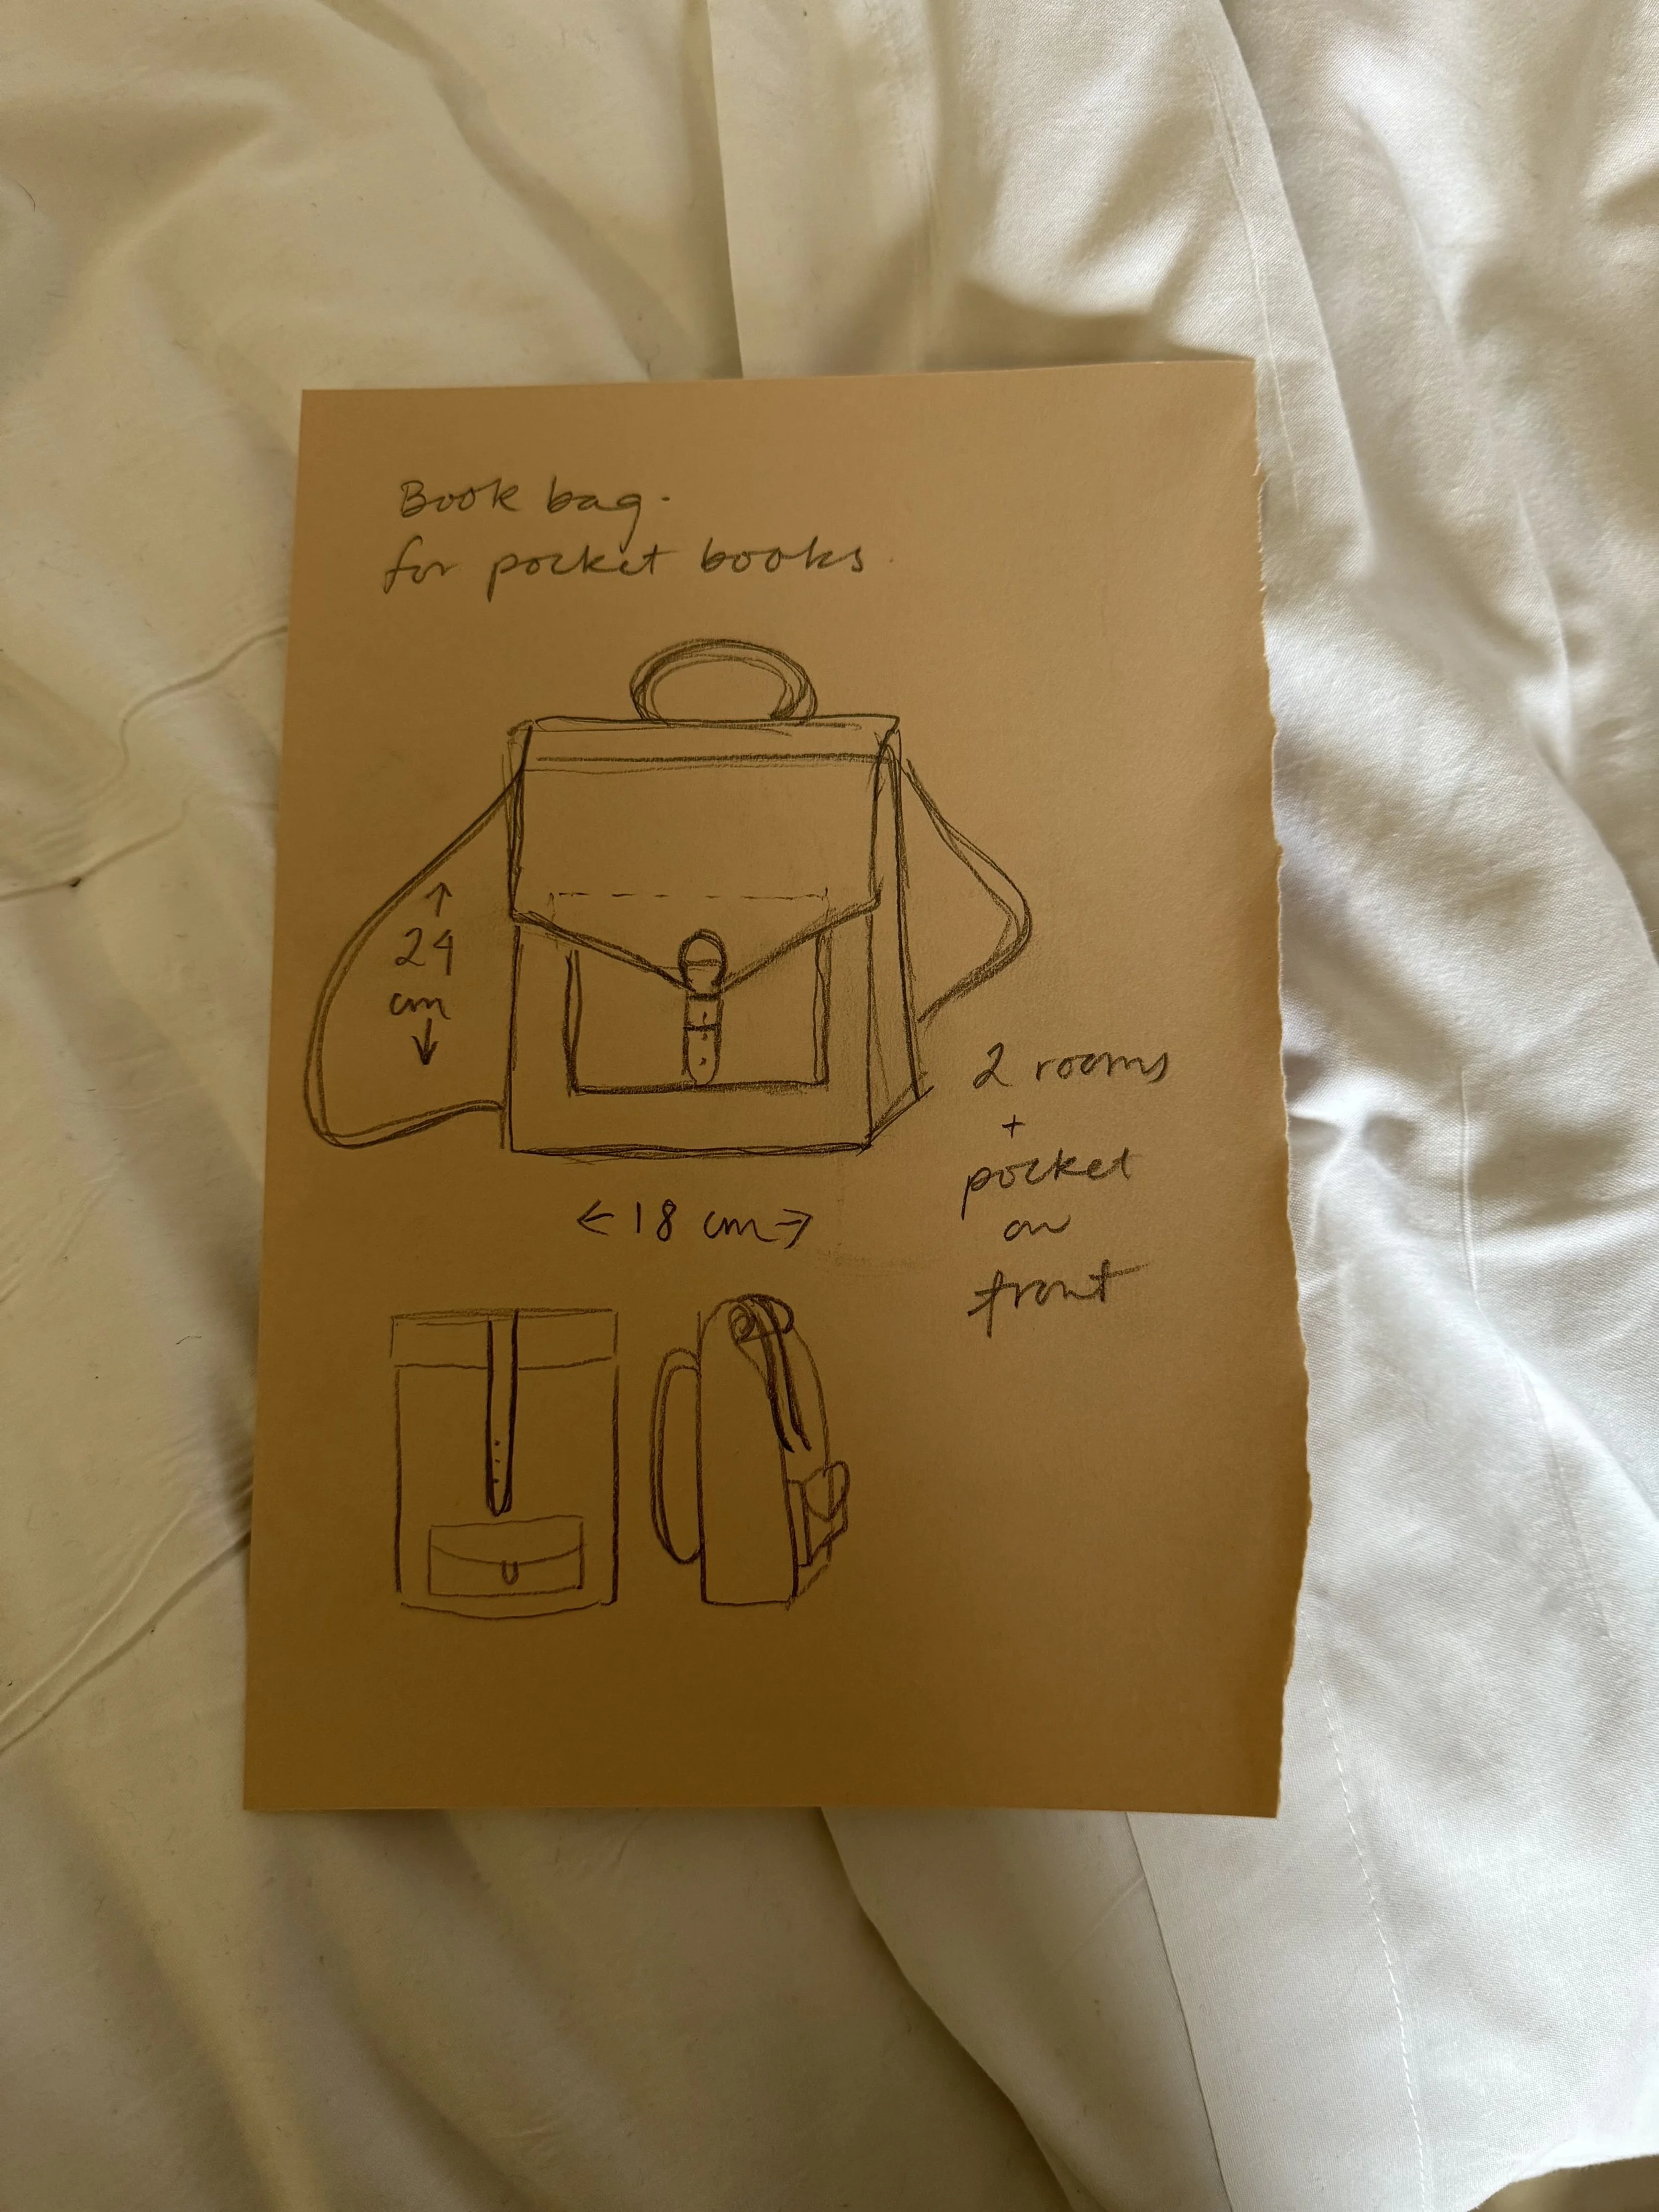 Book bag.
for pocket books.
↑
24
cm
↓
2 rooms
+
pocket
on
front
← 18 cm →